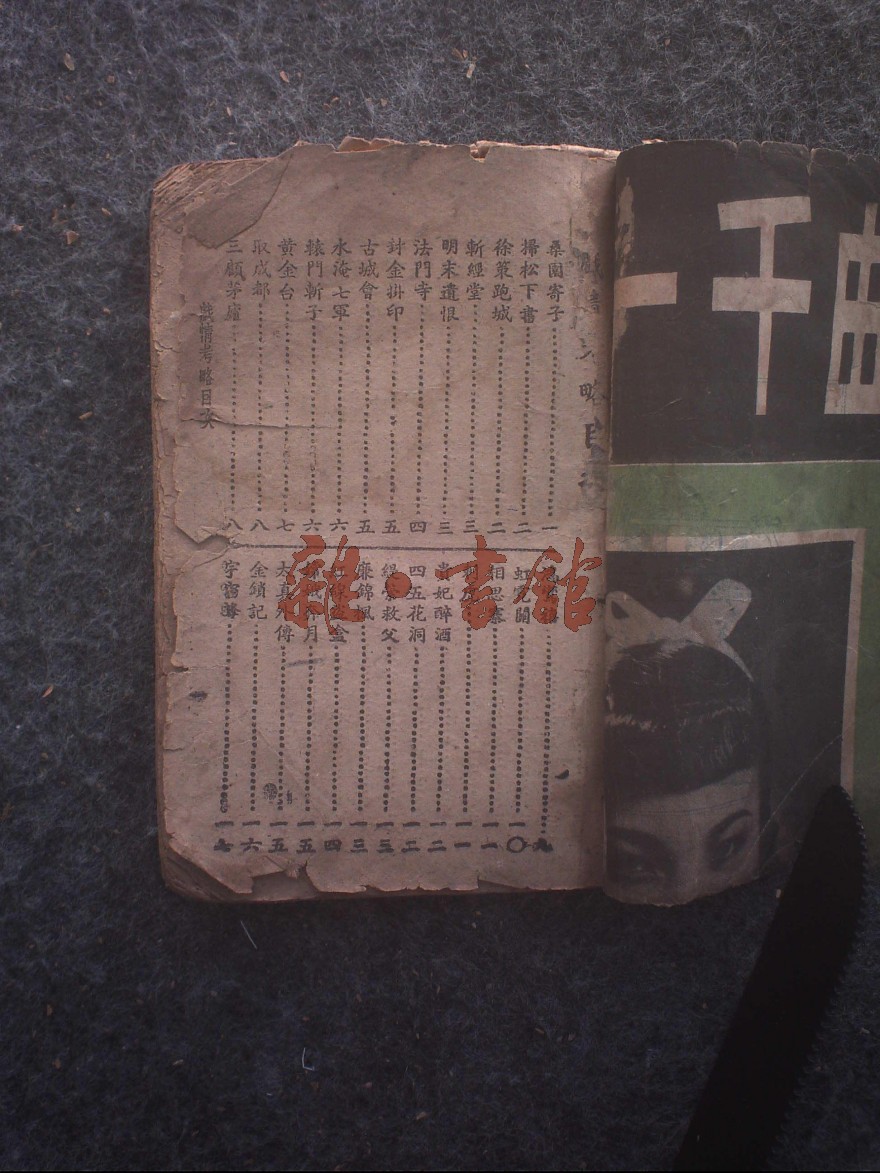 桑園寄子 一
掃松下書 二
徐策跑城 二
斬經堂 三
明末遺恨 三
法門寺 四
封金掛印 五
古城會 五
水淹七軍 六
轅門斬子 六
黃金台 七
取成都 八
三顧茅廬 八
虹霓關 一〇
相思寨 一一
一一
貴妃醉酒 一二
四五花洞 一二
緹縈救父 一三
廉錦楓 一三
一四
一五
太真外傳 一五
金鎖記 一六
宇宙鋒 一七
戲情考略目次
曲千一
雜·書館